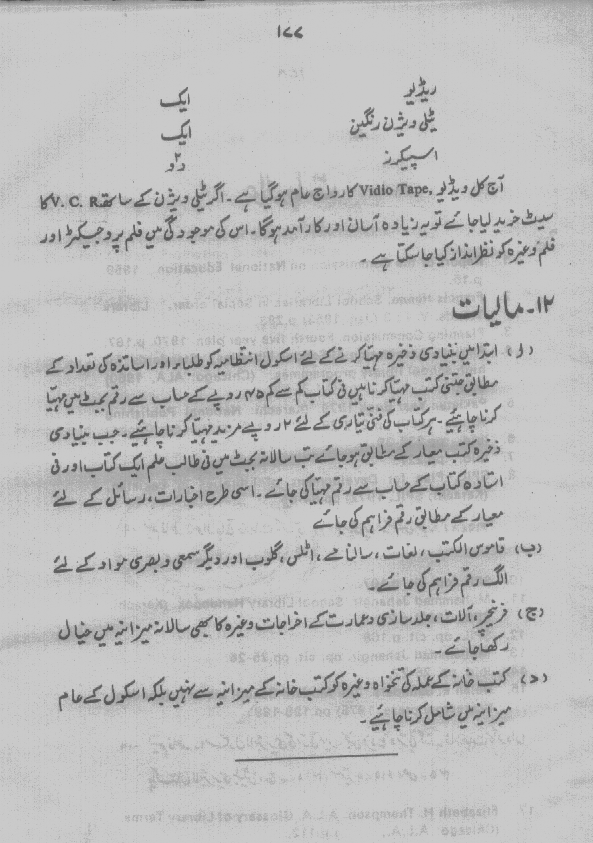 ۱۷۷
ریڈیو ایک
ٹیلی ویژن رنگین ایک
اسپیکرز دو
آج کل ویڈیو Vidio Tape, کا رواج عام ہوگیا ہے۔ اگر ٹیلی ویژن کے ساتھ V. C. R کا
سیٹ خرید لیا جائے تو یہ زیادہ آسان اور کارآمد ہوگا۔ اس کی موجودگی میں فلم پروجیکٹر اور
فلم وغیرہ کو نظر انداز کیا جا سکتا ہے۔
۱۲۔ مالیات
(ا) ابتدا میں بنیادی ذخیرہ مہیا کرنے کے لئے اسکول انتظامیہ کو طلباء اور اساتذہ کی تعداد کے
مطابق جتنی کتب مہیا کرنا ہیں فی کتاب کم سے کم ۴۵ روپے کے حساب سے رقم بجٹ میں مہیا
کرنا چاہیئے۔ ہر کتاب کی فنی تیاری کے لئے ۲ روپے مزید مہیا کرنا چاہیئے۔ جب بنیادی
ذخیرہ کتب معیار کے مطابق ہو جائے تب سالانہ بجٹ میں فی طالب علم ایک کتاب اور فی
استاد ۵ کتاب کے حساب سے رقم مہیا کی جائے۔ اسی طرح اخبارات، رسائل کے لئے
معیار کے مطابق رقم فراہم کی جائے
(ب) قاموس الکتب، لغات، سالنامے، اٹلس، گلوب اور دیگر سمعی و بصری مواد کے لئے
الگ رقم فراہم کی جائے۔
(ج) فرنیچر، آلات، جلد سازی و عمارت کے اخراجات وغیرہ کا بھی سالانہ میزانیہ میں خیال
رکھا جائے۔
(د) کتب خانہ کے عملہ کی تنخواہ وغیرہ کو کتب خانہ کے میزانیہ سے نہیں بلکہ اسکول کے عام
میزانیہ میں شامل کرنا چاہیئے۔